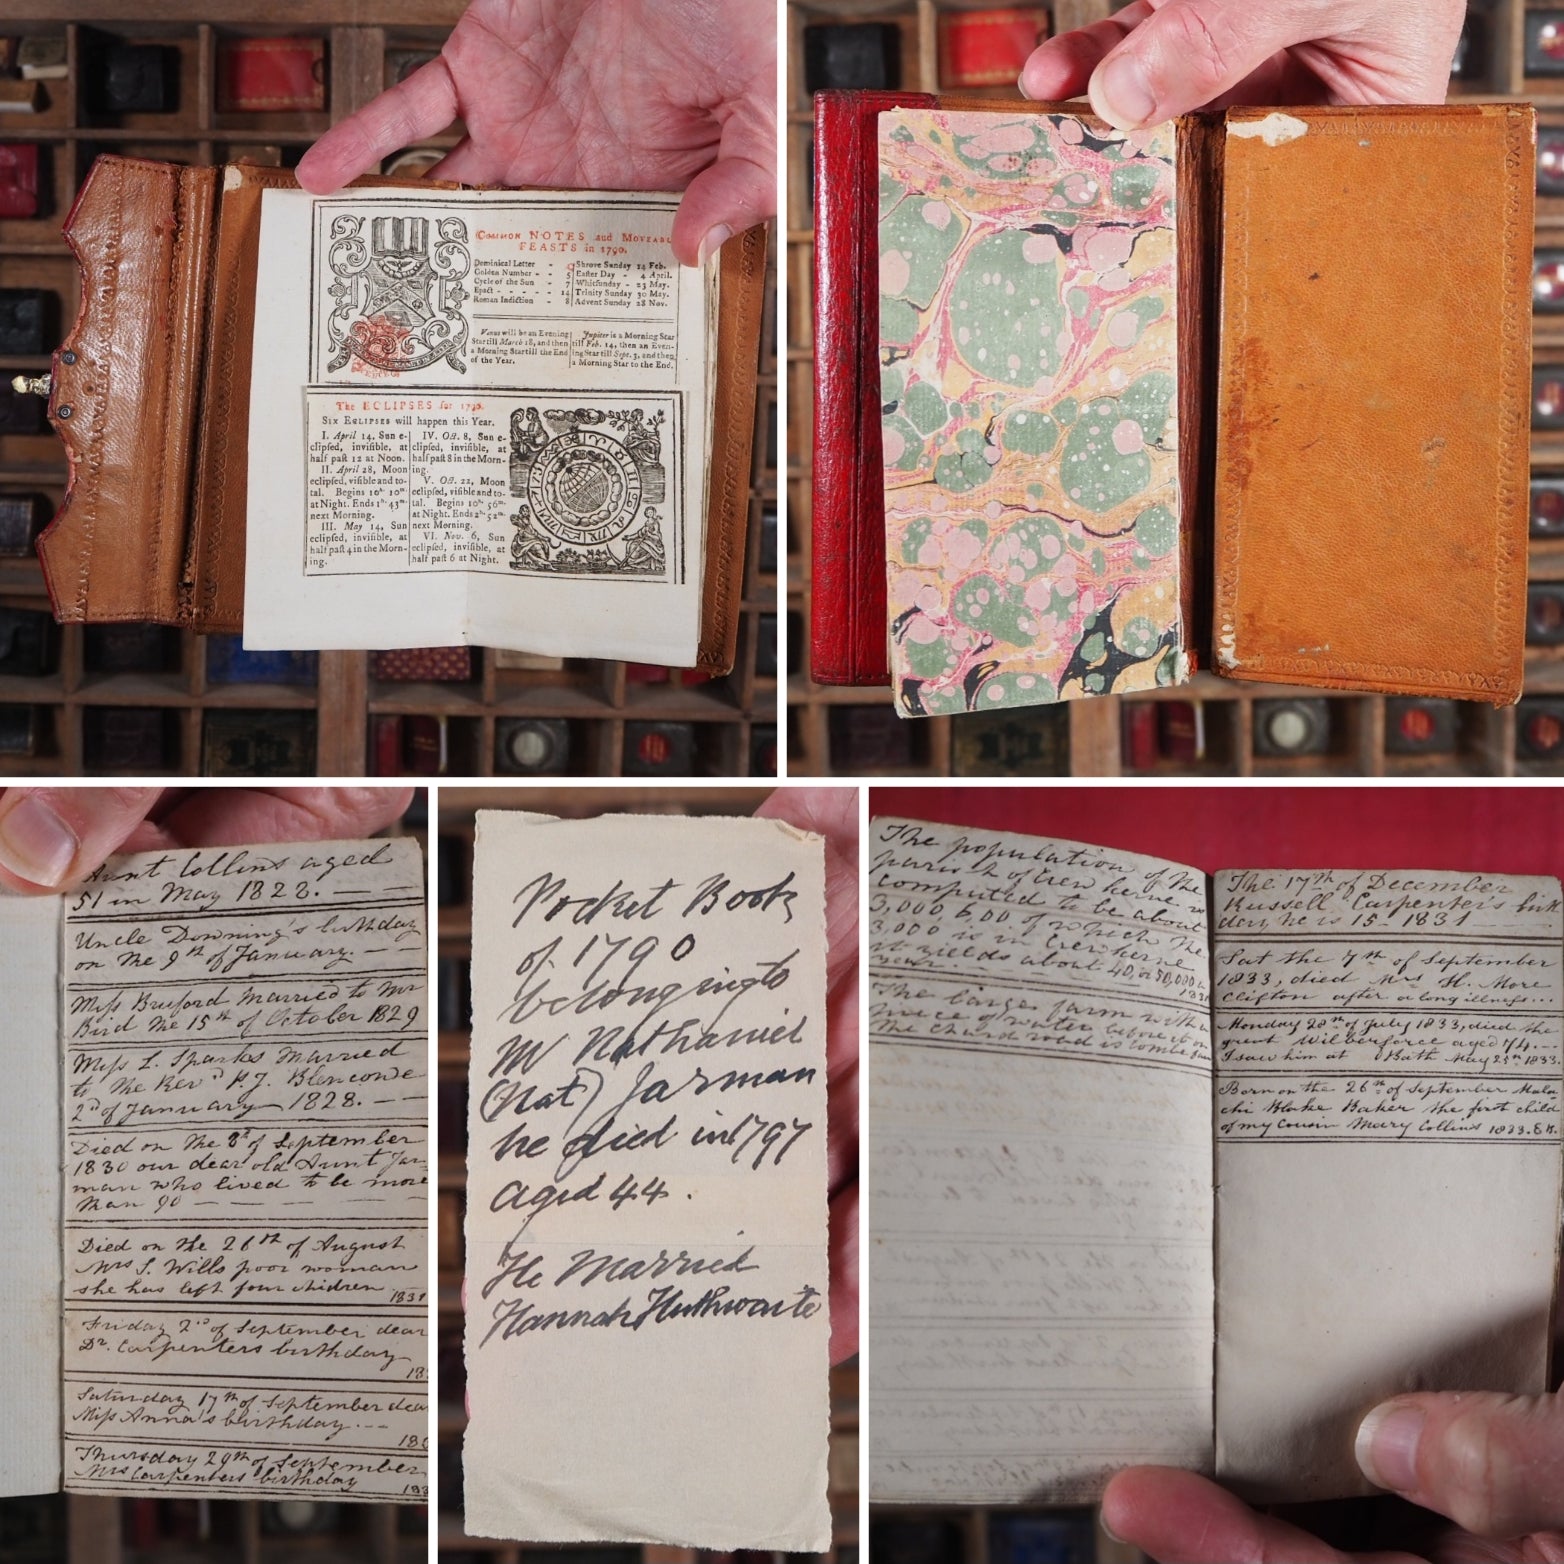 COMMON NOTES and MOVEABL
FEASTS in 1790.
Dominical Letter - C
Golden Number - - 5
Cycle of the Sun - 7
Epact - - - - - 14
Roman Indiction - 8
Shrove Sunday 14 Feb.
Easter Day - 4 April.
Whitsunday - 23 May.
Trinity Sunday 30 May.
Advent Sunday 28 Nov.
Venus will be an Evening
Star till March 18, and then
a Morning Star till the End
of the Year.
Jupiter is a Morning Star
till Feb. 14, then an Even-
ing Star till Sept. 3, and then
a Morning Star to the End.
The ECLIPSES for 1790.
SIX ECLIPSES will happen this Year.
I. April 14, Sun e-
clipsed, invisible, at
half past 12 at Noon.
II. April 28, Moon
eclipsed, visible and to-
tal. Begins 10h 10m
at Night. Ends 1h 43m
next Morning.
III. May 14, Sun
eclipsed, invisible, at
half past 4 in the Morn-
ing.
IV. Oct. 8, Sun e-
clipsed, invisible, at
half past 8 in the Morn-
ing.
V. Oct. 22, Moon
eclipsed, visible and to-
tal. Begins 10h 56m
at Night. Ends 2h 52m
next Morning.
VI. Nov. 6, Sun
eclipsed, invisible, at
half past 6 at Night.
Aunt Collins aged
51 in May 1828. — —
Uncle Downing's birthday
on the 9th of January. —
Miss Bruford Married to Mr
Bird the 15th of October 1829
Miss L. Sparks Married
to the Revd P.J. Blencowe
2d of January 1828. — —
Died on the 8th of September
1830 our dear old Aunt Jar-
man who lived to be more
than 90 — — —
Died on the 26th of August
Mrs S. Wills poor woman
she has left four children 1831
Friday 2nd of September dear
Dr. Carpenters birthday
Saturday 17th of September dear
Miss Anna's birthday. --
Thursday 29th of September
Mrs Carpenters birthday
Pocket Book
of 1790
belonging to
Mr Nathaniel
(Nat) Jarman
he died in 1797
aged 44.
He Married
Hannah Huthwaite
The population of the
parish of Crewkerne is
computed to be about
3,000,600 of which the
3,000 is in Crewkerne
it yields about 40, or 50,000
year.
The large farm with a
piece of water before it on
the Chard road is Combe
The 17th of December
Russell Carpenter's birth
day, he is 15 - 1831
Sat the 7th of September
1833, died Mrs H. More
Clifton after a long illness...
Monday 28th of July 1833, died the
great Wilberforce aged 74. --
I saw him at Bath May 25th 1833.
Born on the 26th of September Mala-
chi Blake Baker the first child
of my cousin Mary Collins 1833.